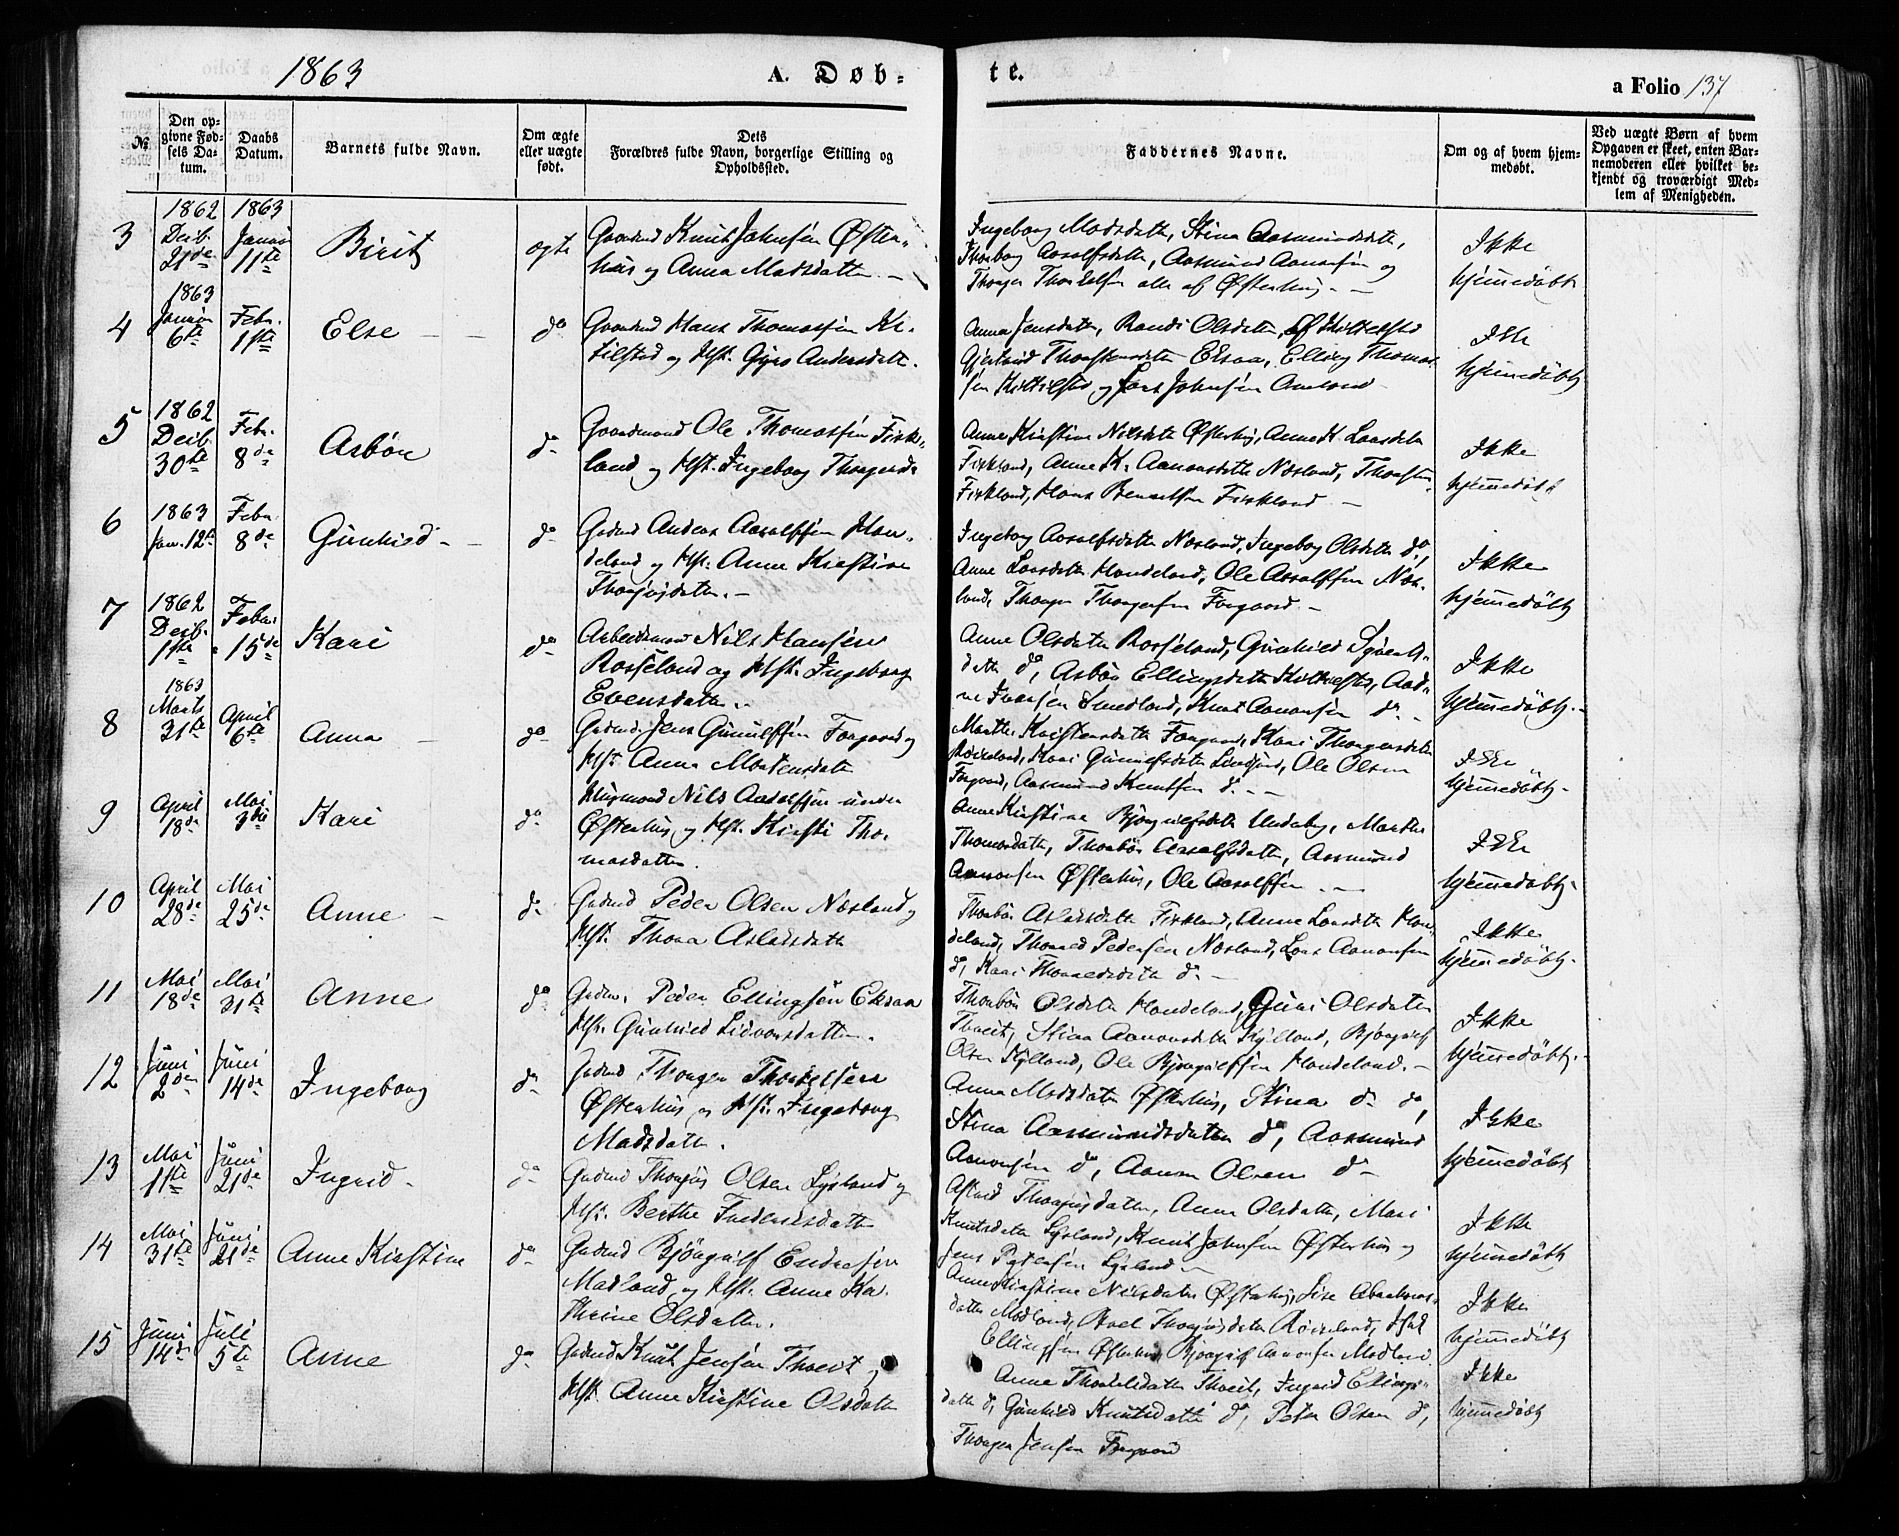 1863
A. Døb-
te.
a Folio 137
No.
Den op-
givne Fød-
sels Da-
tum.
Daabs
Datum.
Barnets fulde Navn.
Om ægte
eller uægte
født.
Dets
Forældres fulde Navn, borgerlige Stilling og
Opholdssted.
Faddernes Navne.
Om og af hvem hjem-
medøbt.
Ved uægte Børn af hvem
Opgaven er skeet, enten Bar-
nemoderen eller hvilket be-
kjendt og troværdigt Med-
lem af Menigheden.
3
1862
Decb.
21de
1863
Januar
11te
Birit
ægte
Gaardmd Knut Johnsen Øster-
huus og Anna Madsdatter
Ingeborg Madsdatter, Stina Aasmundsdatter,
Thorborg Aasolfsdatter, Aasmund Aanonsen og
Thorger Thorkelsen alle af Østerhuus
Ikke
hjemmedøbt
4
1863
Januar
6te
Febr.
1ste
Else
do
Gaardmd Hans Thomassen
og Hst. Gyro Andersdatt.
Anna Jensdatter, Randi Olsdatter, af
Thorstensdatter Eksaa, Elling Thomas-
sen og Lars Johnsen
Ikke
hjemmedøbt
5
1862
Decb.
30te
Febr.
8de
Asbör
do
Gaardmand Ole Thomassen Fisk-
land og Hst. Ingeborg Thorgersd.
Anne Kirstine Nilsdatter Østerhuus, Anne K. Larsdatter
Fiskland, Anne K. Aanonsdatter Nørland, Thorsten
Fiskland, Hans Fiskland
Ikke
hjemmedøbt
6
1863
Jan. 12te
Febr.
8de
Gunhild
do
Gaardmd Anders Aasolfsen Hon-
deland og Hst. Anne Kirstine
Thorjusdatter.
Ingeborg Aasolfsdatter Nørland, Ingeborg Olsdatter do,
Anne Larsdatter Hondeland, Ole Aasolfsen Nør-
land, Thorger Thorgersen
Ikke
hjemmedøbt
7
1862
Decb.
1ste
Febr.
15de
Kari
do
Arbeidsmand Nils Hansen
Rosseland og Hst. Ingeborg
Evensdatter.
Anne Olsdatter Rosseland, Gunhild
datter do, Asbör Ellingsdatter
Iversen Smedland, Knut Aanonsen do
Ikke
hjemmedøbt
8
1863
Marts
31te
April
6te
Anna
do
Gaardmd. Jens Gunulfsen og
Hst. Anna Mortensdatter
Marthe Kristensdatter Kari Thorgersdatter
Kari Gunulfsdatter Ole Olsen
Aasmund Knutsen do
Ikke
hjemmedøbt
9
April
18de
Mai
3die
Kari
do
Huusmand Nils Aadolfsen under
Østerhus og Hst. Kirsti Tho-
masdatter.
Anne Kirstine Bjørgulfsdatter Marthe
Thomasdatter, Thorbör Aasolfsdatter, Aasmund
Aanonsen Østerhus, Ole Aasolfsen
Ikke
hjemmedøbt
10
April
28de
Mai
25de
Anne
do
Gaardmd Peder Olsen Nørland og
Hst. Thora Aslaksdatter
Thorbör Aslaksdatter Fiskland, Anne Larsdatter Hon-
deland, Pedersen Nørland, Lars Aanonsen
do, Kari do
Ikke
hjemmedøbt
11
Mai
18de
Mai
31te
Anne
do
Gaardm. Peder Ellingsen Eksaa
Hst. Gunhild Sidvorsdatter.
Thorbör Olsdatter Hondeland, Guri Olsdatter
Thveit, Stina Aanonsdatter Kylland, Bjørgulf
Olsen Kylland, Ole Bjørgulfsen Hondeland.
Ikke
hjemmedøbt
12
Juni
2den
Juni
14de
Ingeborg
do
Gaardmd Thorger Thorkelsen
Østerhus og Hst. Ingeborg
Madsdatter.
Anna Madsdatter Østerhus, Stina do do,
Stina Aasmundsdatter do, Aasmund
Aanonsen do, Aanon Olsen do
Ikke
hjemmedøbt
13
Mai
11te
Juni
21de
Ingrid
do
Gaardmd Thorjus Olsen Lysland og
Hst. Berthe Frederiksdatter
Astrid Thorjusdatter, Anna Olsdatter, Mari
Knutsdatter Lysland, Knut Johnsen Østerhus og
Jens Lysland
Ikke
hjemmedøbt
14
Mai
31te
Juni
21de
Anne Kirstine
do
Gaardmd Bjørgulf Endresen
Madland og Hst. Anne Ka-
thrine Olsdatter.
Anne Kirstine Nilsdatter Østerhus, Lise
datter Madland, Thorjusdatter
Ellingsen Østerhus, Bjørgulf Aanonsen Madland
Ikke
hjemmedøbt
15
Juni
14de
Juli
5te
Anne
do
Gaardmd Knut Jensen Thveit og
Hst. Anne Kirstine Olsdatter
Anne Thorkelsdatter Thveit, Ingrid Ellings-
datter do, Gunhild Knutsdatter do, Peter Olsen do,
Thorger Jensen
Ikke
hjemmedøbt